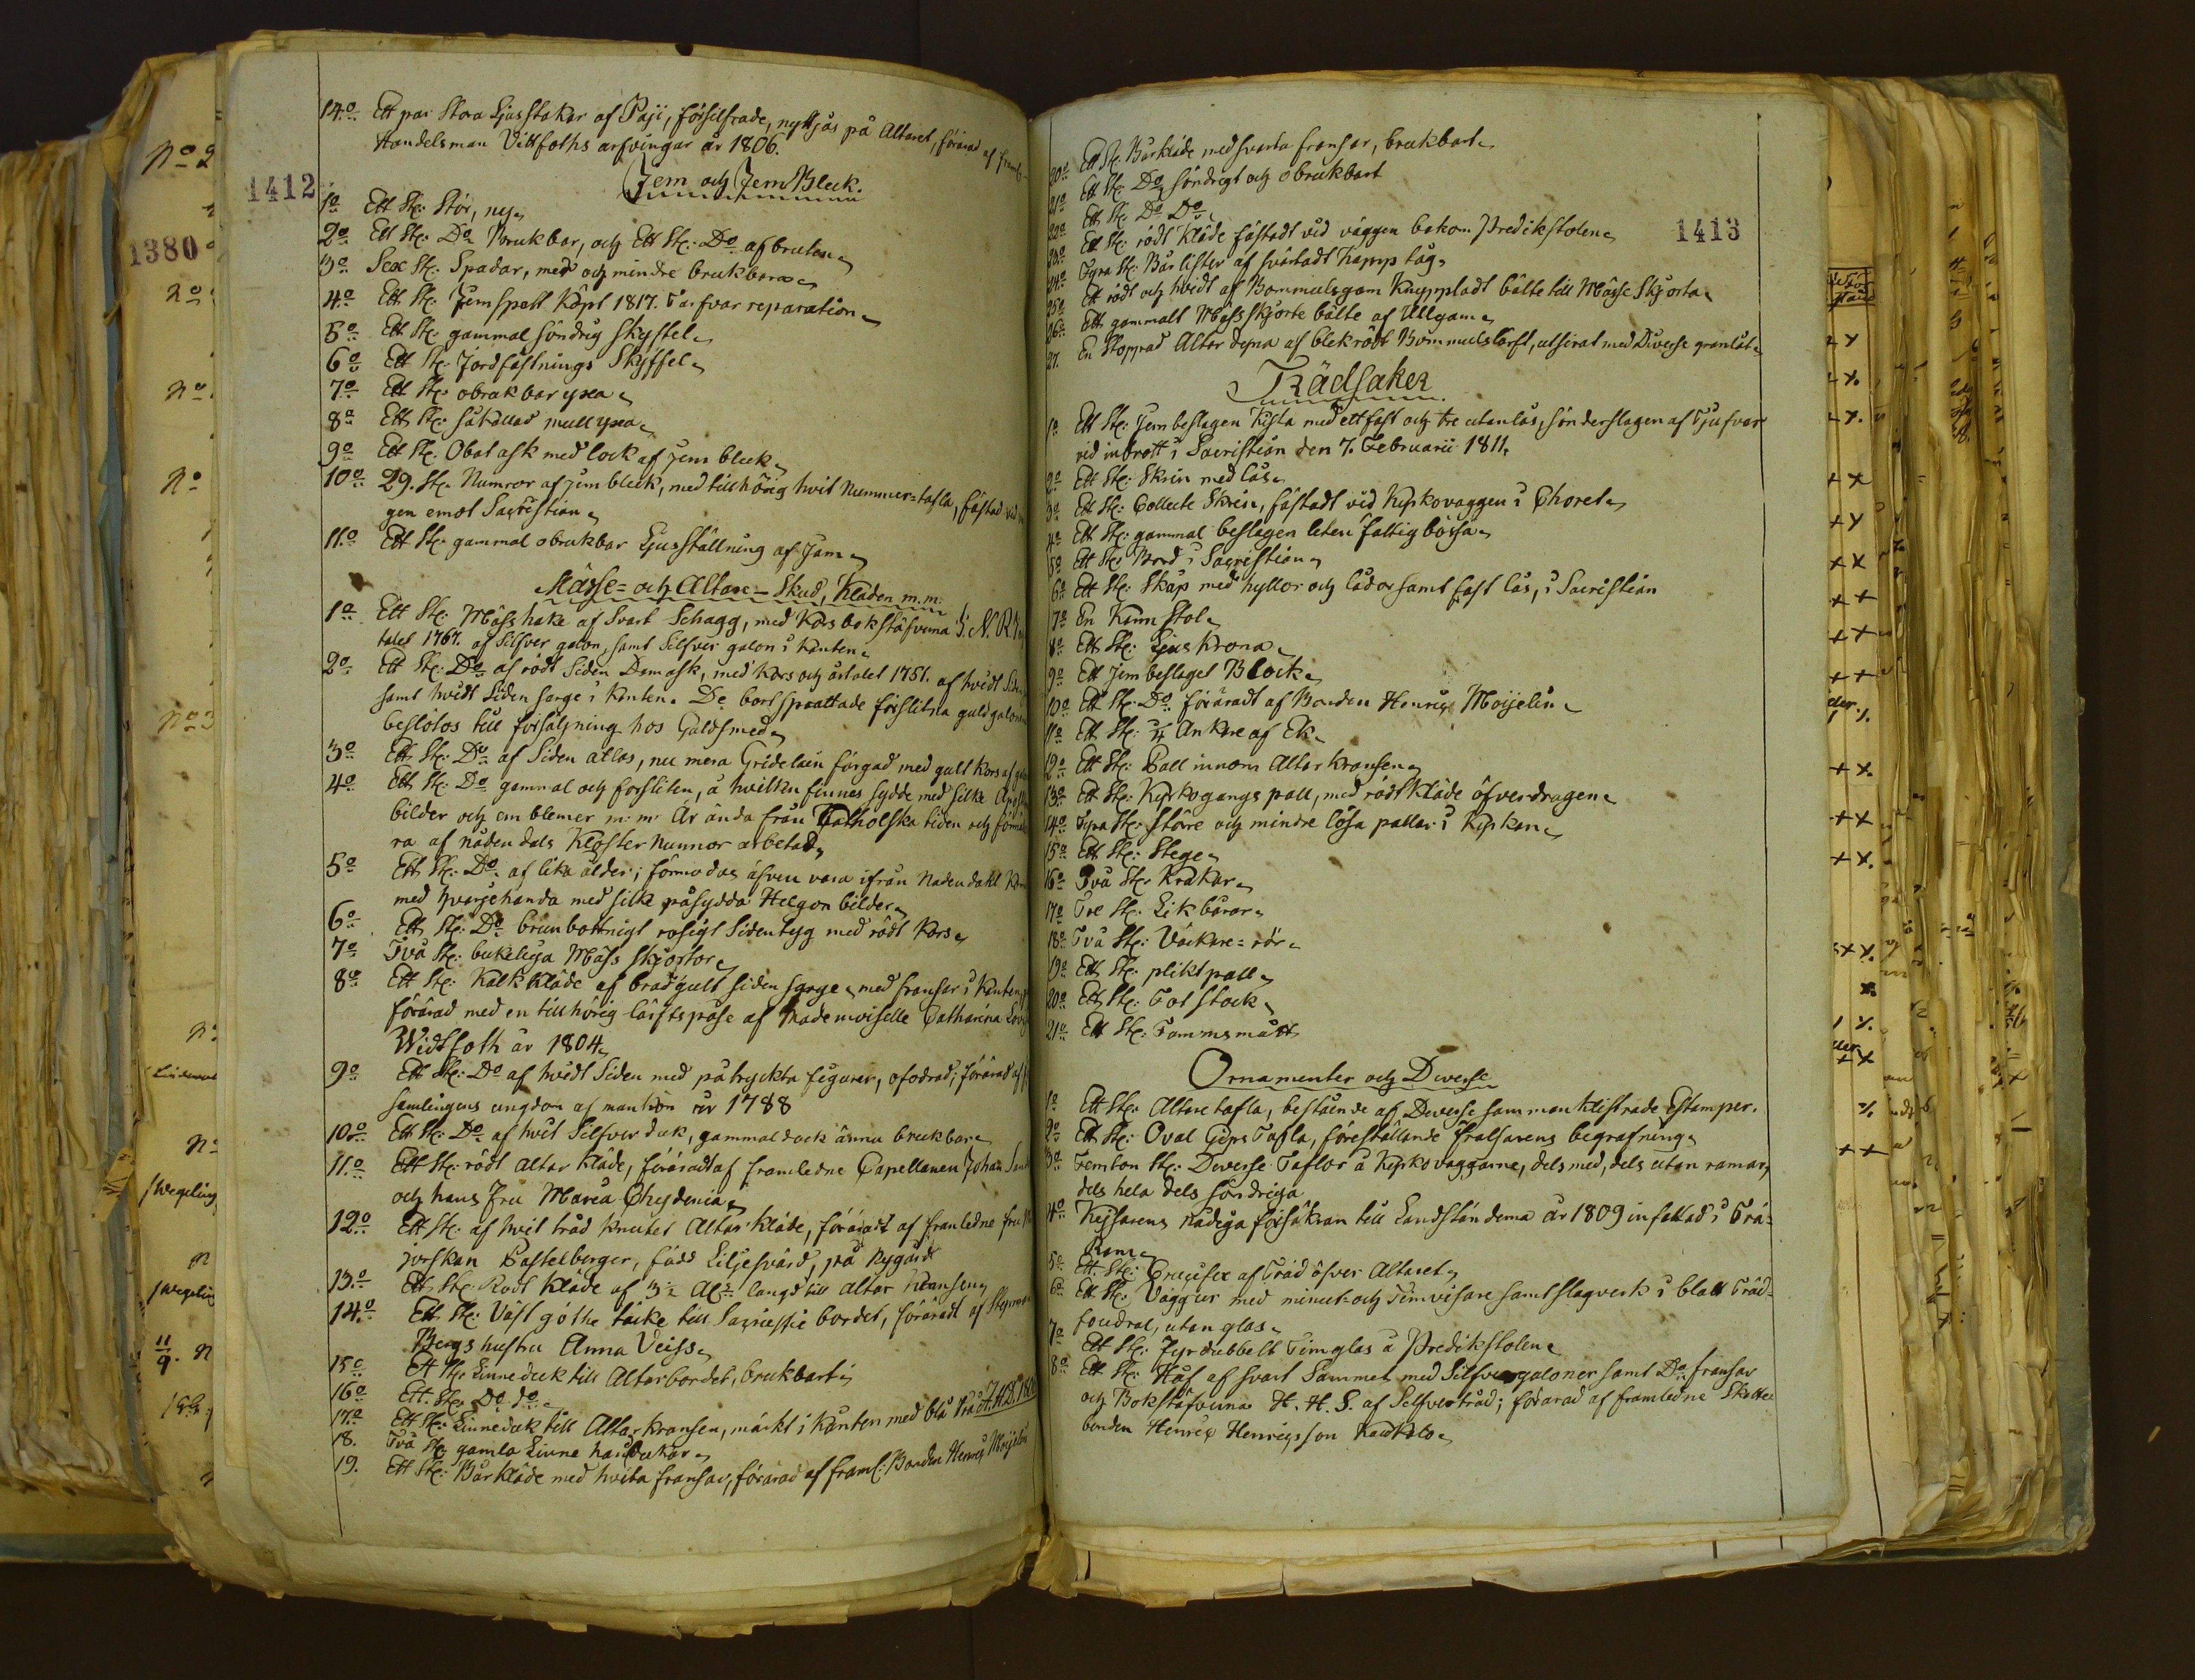 1412
14:o Ett par Stora Ljusstakar af Paji, försilfrade, nyttjas på Altaret, förärad af
Handelsman Vittfoths arfvingar år 1806.
Jern och Jern Bleck.
1o Ett St: Stör, ny
2o Ett St: Do Brukbar, och Ett St: Do afbruten
3o Sex St: Spadar, mer och mindre brukbara
4o Ett St: Jernspett Köpt 1817. Tarfvar reparation
5o Ett St: gammal söndrig Skyffel
6o Ett St: Jordfästnings Skyffel
7o Ett St: obrukbar yxa
8o Ett St: så kallad mullyxa
9o Ett St: Oblat ask med lock af jern bleck
10o 29. St: Numror af jern bleck, med tillhörig hvit Nummer-tafla, fästad vid
gen emot Sacristian
11.o Ett St: gammal obrukbar Ljusställning af Jern
Mässe- och Altare-Skrud, Kläden m.m.
1o Ett St: Mässhake af Svart Schagg, med Kors bokstäfverna I. N. R.
talet 1767. af Silfver galon, samt Silfver galon i kanten
2o Ett St: Do af rödt Siden Damask, med Kors och årtalet 1751. af hvidt
samt hvidt Siden sarge i kanten. De bortsprättade förslitna guldgaloner
beslötos till försäljning hos Guldsmed
3o Ett St: Do af Siden atlas, nu mera Gredelain färgad med gult Kors af
4o Ett St: Do gammal och forsliten, å hvilken finnes sydde med silke
bilder och emblemer m: m: Är ända från Catholska tiden och
ra af nådendals Kloster Nunnor arbetad
5o Ett St: Do af lika ålder; förmodas äfven vara ifrån Nadendahl
med hvarjehanda med silke påsydda Helgon bilder
6o Ett St: Do brunbottnigt rosigt Sidentyg med rödt Kors
7o Två St: brukeliga Mäss Skjortor
8o Ett St: Kalk Kläde af brandgult siden sarge, med fransar i kanten
förärad med en tillhörig lärftspåse af Mademoiselle Catharina
Widtfoth år 1804
9o Ett St: Do af hvidt Siden med påtryckta figurer, ofodrad; förärad af
samlingens ungdom af mankön år 1788
10o Ett St: Do af hvit Silfver duk, gammal dock ännu brukbar
11.o Ett St: rödt altar kläde, föräradt af framledne Capellanen Johan
och hans Fru Maria Chydenia
12o Ett St: af hvit tråd knutet Altar kläde, förärad af framledne fru
jorskan Bastelberger, född Liljesvärd, på Nygård
13.o Ett St: Rödt Kläde af 3 ½ Al: langd till altar kransen
14.o Ett St: Västgöthe täcke till Sacristie bordet, förärad af
Bergs hustru Anna Veiss
15o Ett St: Linneduk till Altarbordet, brukbart
16o Ett St: Do do
17.o Ett St: Linneduk till Altar kransen, märkt i kanten med blå
18. Två St: gamla Linne handdukar
19. Ett St: Bår kläde med hvita fransar, förärad af framl: Bonden Henric Moijelin
1413
20o Ett St: Bårkläde med svarta fransar, brukbart
21o Ett St: Do söndrigt och obrukbart
22o Ett St: Do Do
23o Ett St: rödt Kläde fästadt vid väggen bakom Predikstolen
24o Fyra St: Bår lister af svärtadt hamp tåg
25o Ett rödt och hvidt af Bommulsgarn Knyppladt bälte till Mässe Skjorta
26o Ett gammalt Mässskjorte bälte af Ullgarn
27. En Stoppad Altar dyna af blekrödt Bommulslärft, utsirat med Diverse granlåt
Trädsaker
1o Ett St: Jern beslagen Kista med ett fast och tre utanlås, sönderslagen af Tjufvar
vid inbrott i Sacristian den 7. Februarii 1811.
2o Ett St: Skrin med lås
3o Ett St: Collecte Skrin, fästadt vid Kyrkovaggen i Choret
4o Ett St: gammal beslagen liten fattig bössa
5o Ett St: Bord i Sacristian
6o Ett St: Skåp med hyllor och lådor samt fast lås, i Sacristian
7o En Karm stol
8o Ett St: Ljus Krona
9o Ett Jern beslaget Block
10o Ett St: Do förärad af Bonden Henric Moijelin
11o Ett St: ¼ Ankare af Ek
12o Ett St: Pall innom Altar Kransen
13o Ett St: Kyrkogångs pall, med rödt kläde öfverdragen
14o Fyra St: större och mindre lösa pallar i Kyrkan
15o Ett St: Stege
16o Två St: Krakar
17o Tre St: Likbårar
18o Två St: Väckare-rör
19o Ett St: pliktpall
20o Ett St: Fotstock
21o Ett St: Famnsmått
Ornamenter och Diverse
1o Ett St: Altare tafla, bestående af Diverse sammanklistrade Estamper.
2o Ett St: Oval Gips Tafla, föreställande Frälsarens begrafning
3o Femton St: Diverse Taflor å Kyrkovaggarne, dels med, dels utan ramar,
dels hela dels söndriga
4o Kejsarens nådiga försäkran till Landständerna år 1809 infattad i Trä-
Ram
5o Ett St: Crucifix af Träd öfver Altaret
6o Ett St: Väggur med minut- och Timvisare samt slagverk i blått Träd-
foudral, utan glas
7o Ett St: Fyrdubbelt Timglas å Predikstolen
8o Ett St: Håf af svart Sammet med Silfvergaloner samt Do fransar
och Bokstäfverna H. H. S. af Silfvertråd; förärad af framledne Skatte
bonden Henric Henricsson
1380